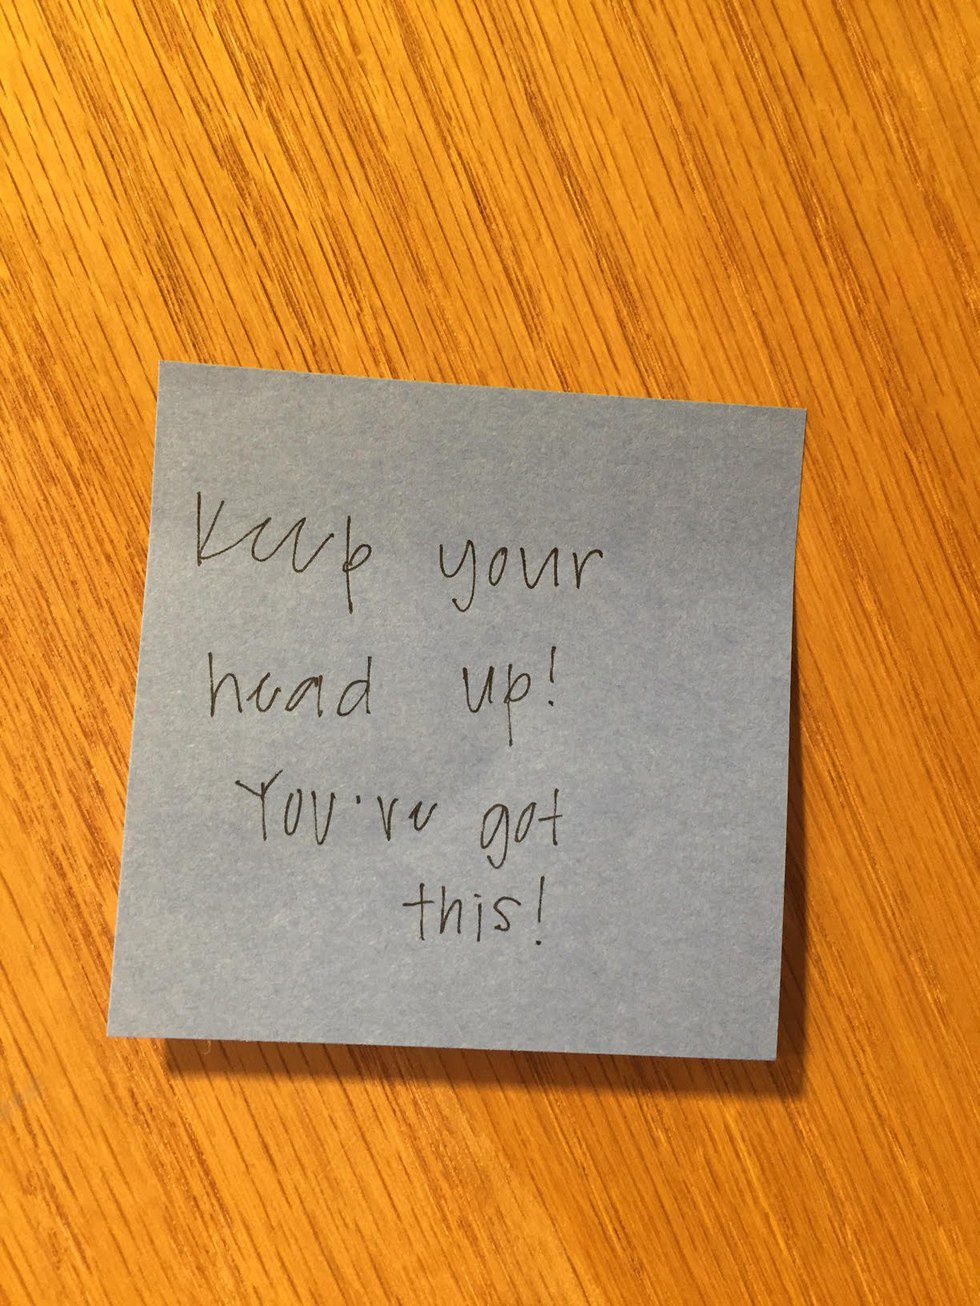 Keep your
head up!
You've got
this!